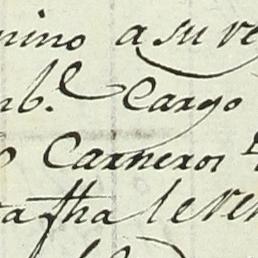 nino a su re
nb.e Cargo
o Carneros
ta fha le ven